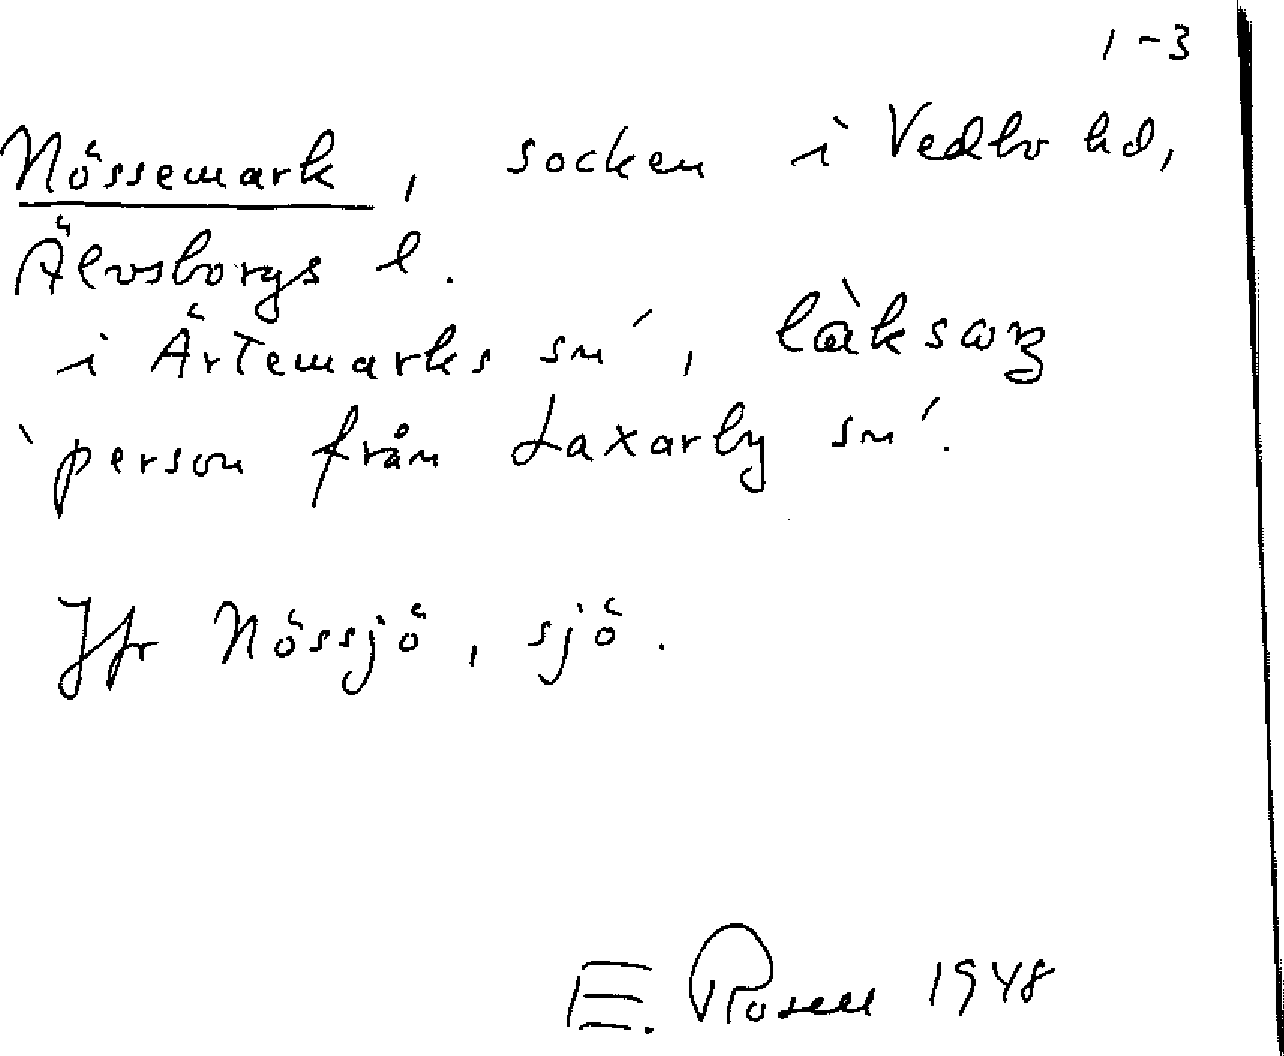 1-3
Nössemark, socken i Vedbo hd,
Älvsborgs l.
i Ärtemarks sn', làksaʒ
`person från Laxarby sn'.
Jfr Nössjö, sjö.
E. Rosell 1948